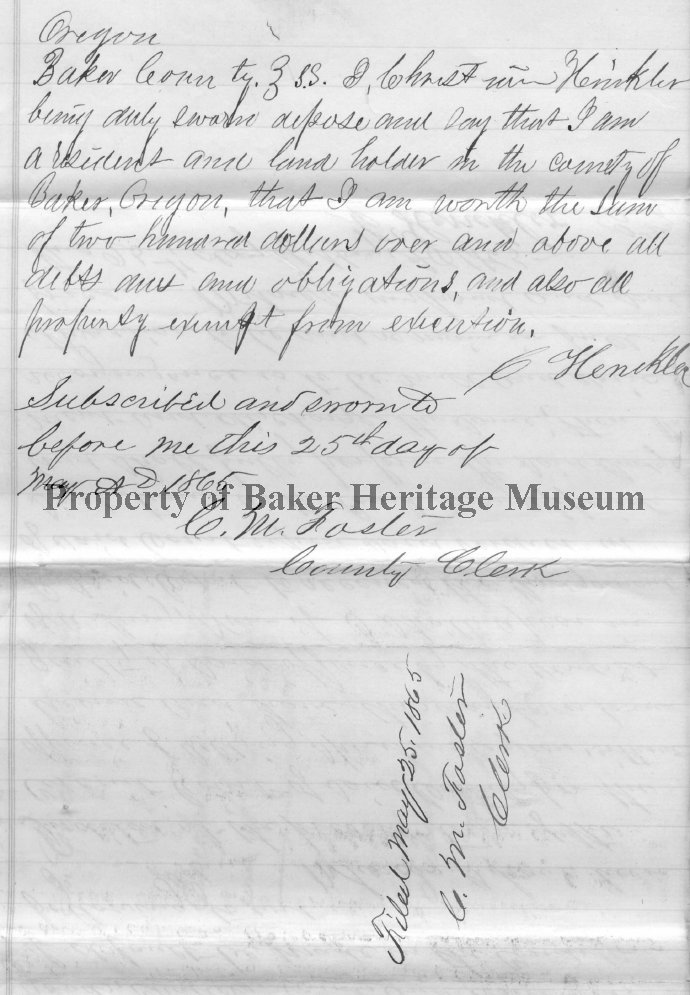 Oregon
Baker County. } S.S. I, Christian Hinkler
being duly sworn depose and say that I am
a resident and land holder in the county of
Baker, Oregon, that I am worth the sum
of two hundred dollars over and above all
debts due and obligations, and also all
property exempt from execution.
C Henckler
Subscribed and sworn to
before me this 25th day of
May AD 1865
Property of Baker Heritage Museum
C. M. Foster
County Clerk
Filed May 25, 1865
C. M. Foster
Clerk